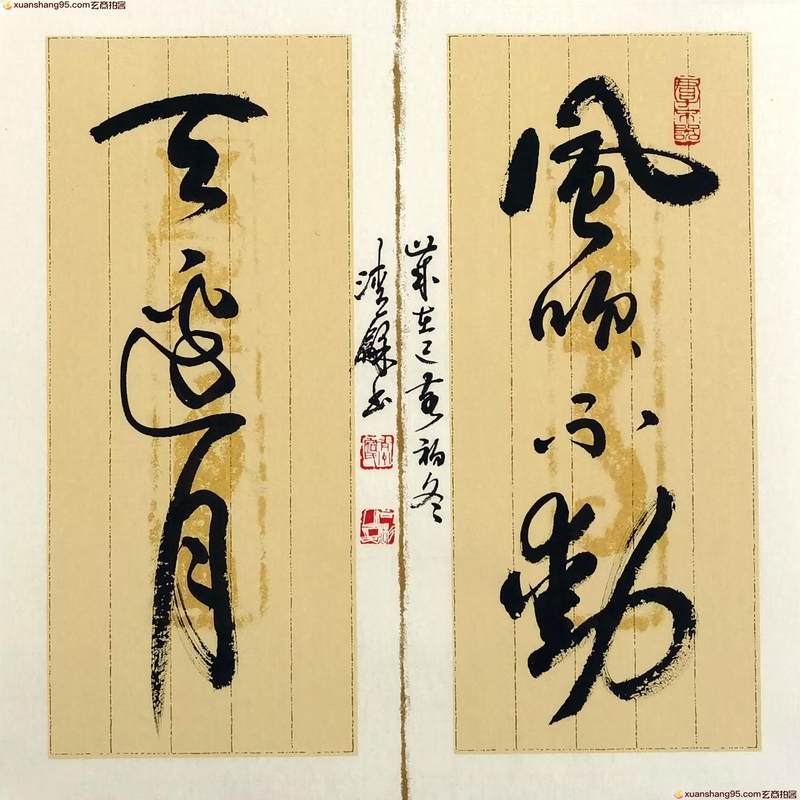 xuanshang95.com玄商拍客
風吹不動
天邊月
歲在己亥初冬
xuanshang95.com玄商拍客